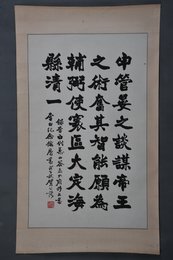 申管晏之談謀帝王
之術奮其智能願為
輔弼使寰區大定海
縣清一